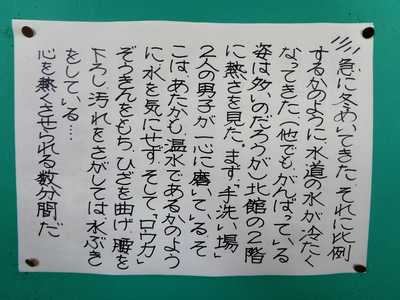 急に冬めいてきた。それに比例
するかのように、水道の水が冷たく
なってきた。(他でもがんばっている
姿は多いのだろうが)北館の2階
に熱さを見た。まず、手洗い場」
2人の男子が一心に磨いている。そ
こは、あたかも、温水であるかのよう
に水を気にせず。そして、「ロウカ」
ぞうきんをもち、ひざを曲げ、腰を
下ろし、汚れをさがしては水ぶき
をしている…
心を熱くさせられる数分間だ